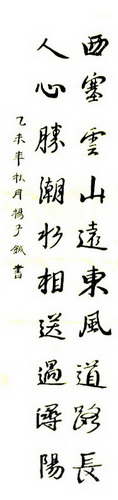 西塞雲山遠東風道路長
人心勝潮水相送過潯陽
乙未年秋月楊子鉞書